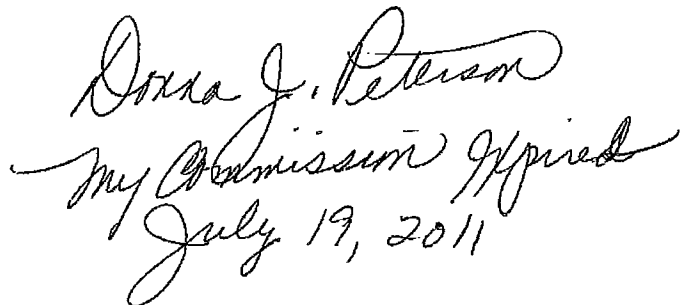 Donna J. Peterson
My Commission Expired
July 19, 2011